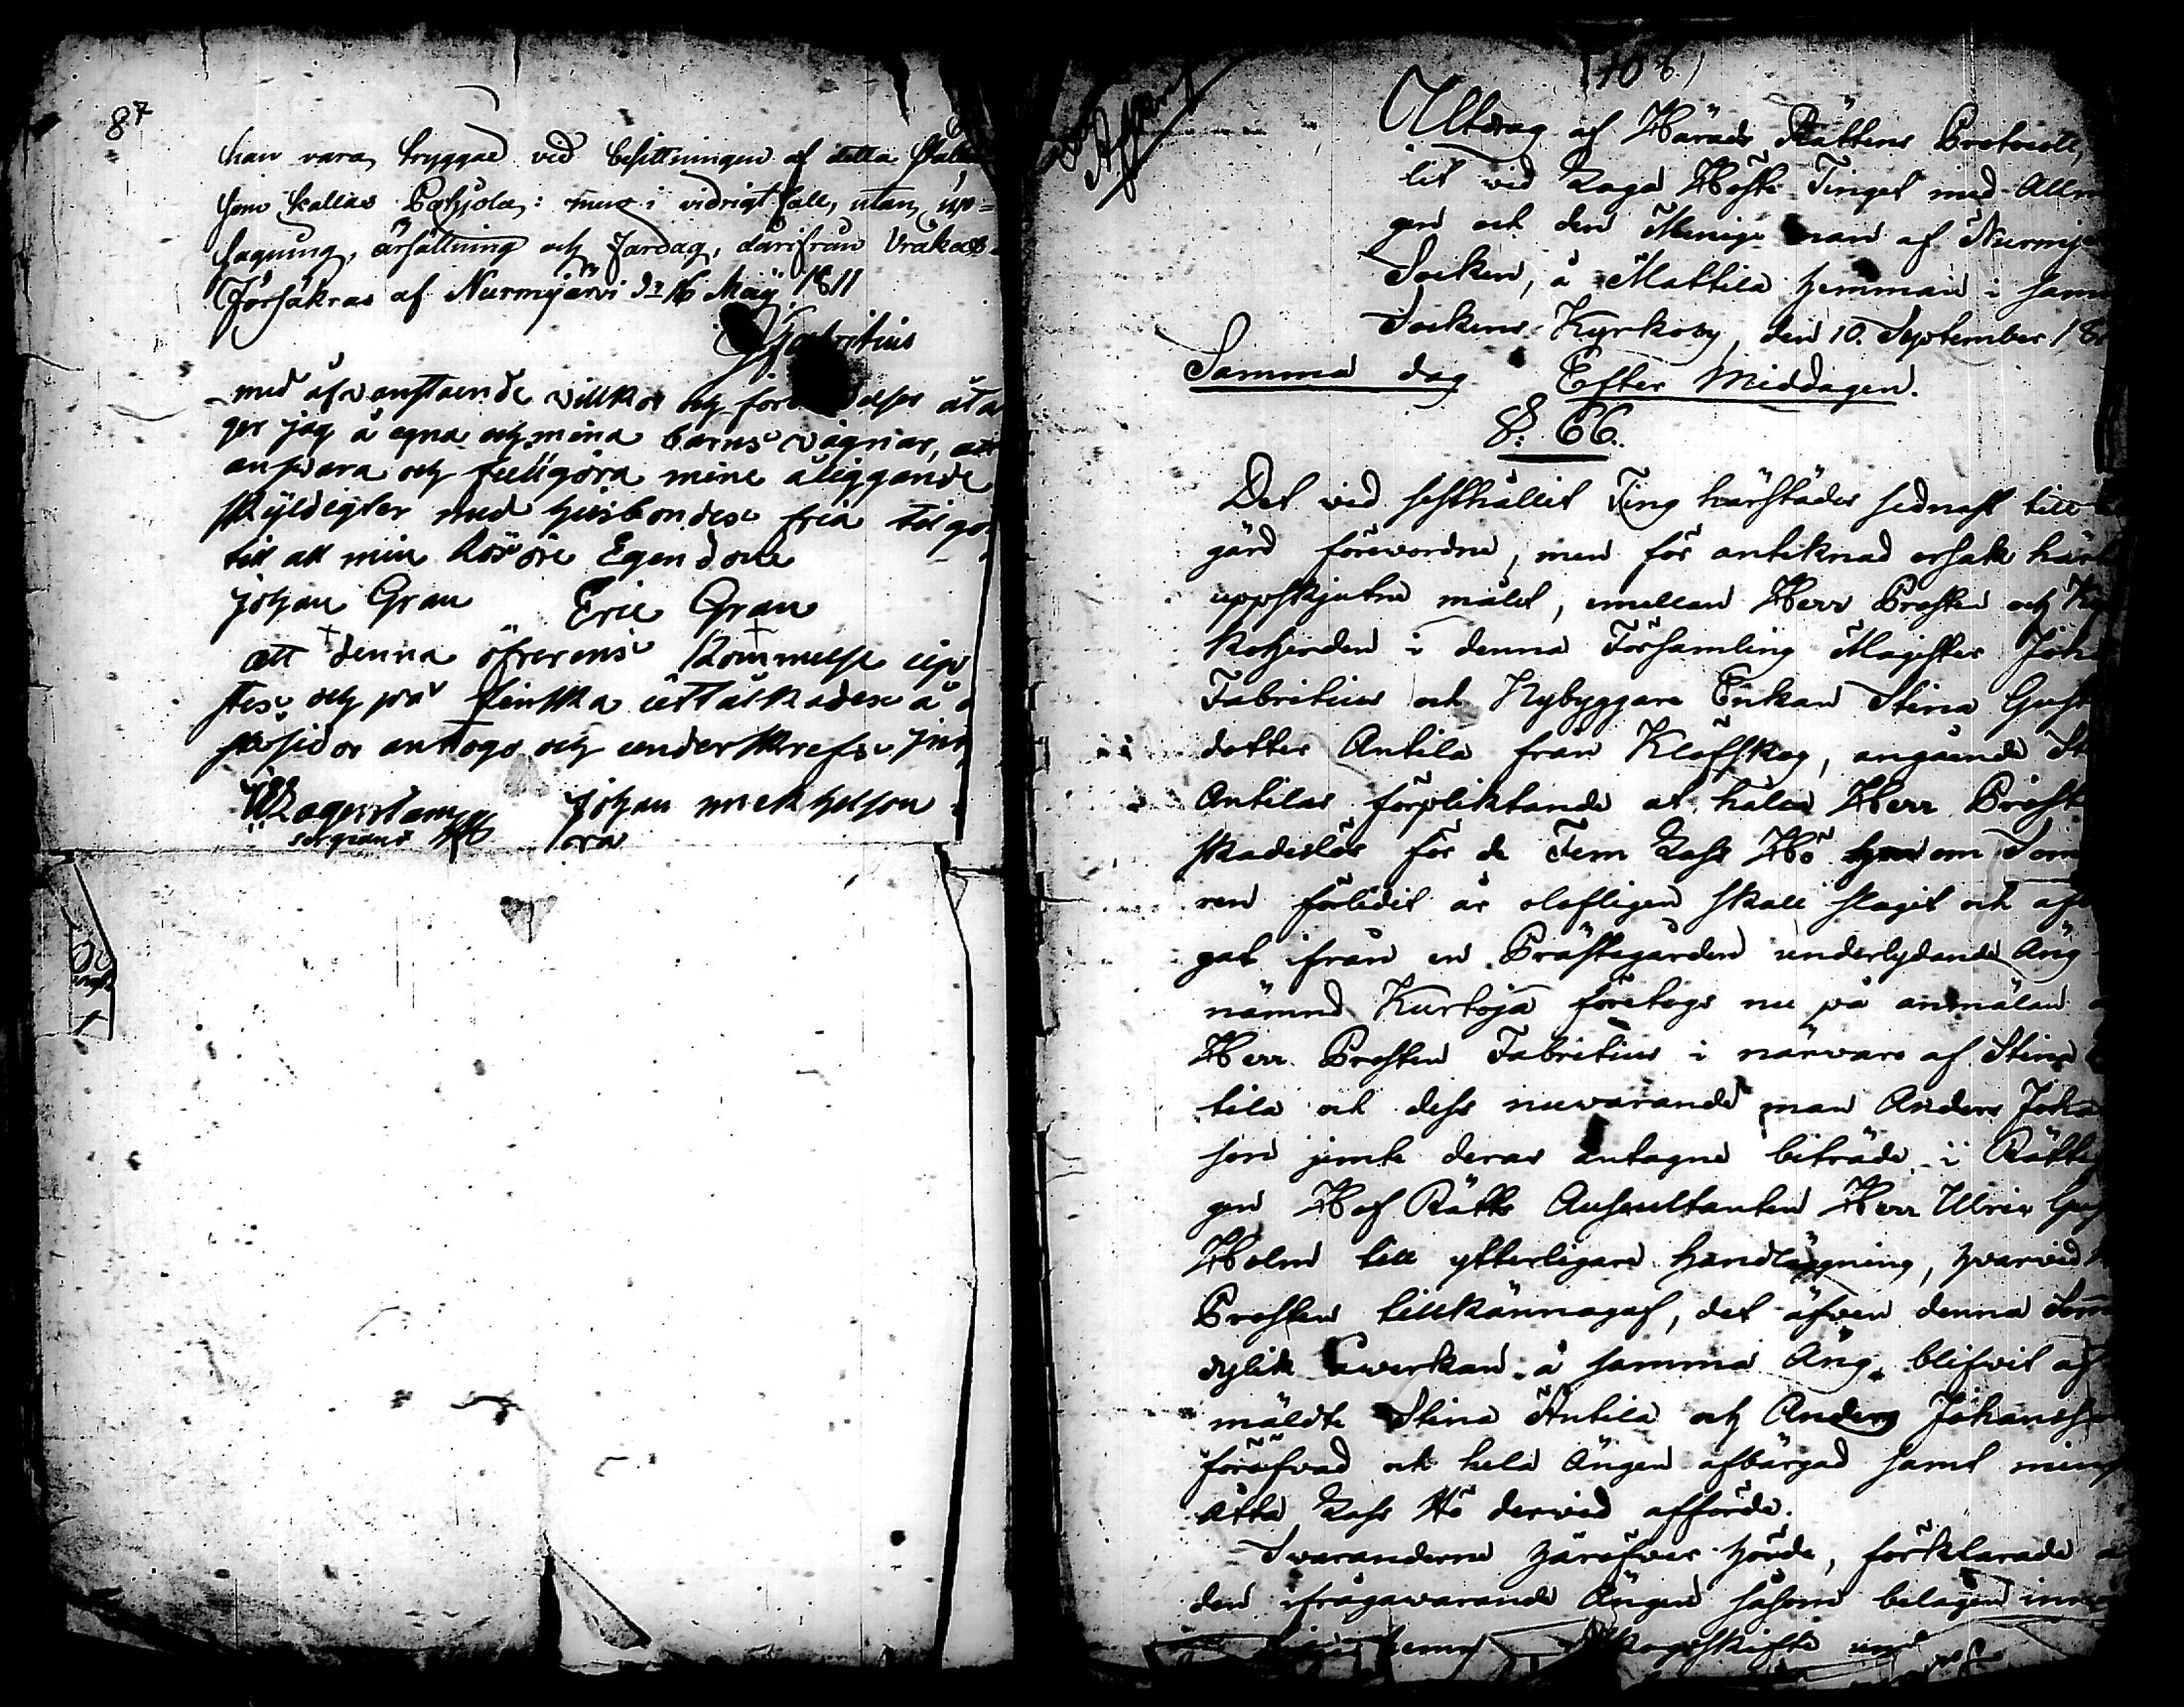 87
kan vara tryggad vid besittningen af detta ställe
som kallas Pohjola: men i vidrigt fall, utan up=
sagning, ärsättning och fardag, därifrån vräkas
Försäkras af Nurmijärvi d. 16 Maij 1811
Fabritius
med ofvanstaende villkor och åta
ger jag å egna och mina barns vägnar, att
ansvara och fullgöra mine åliggande
skyldigter med husbondes fria tilgå
till all min lösöre Egendom
Johan Gran Eric Gran
att denna öfverens kommelse up
stes och på finska uttålkades å
sidor antogs och underskrefs
Johan mickhelson
sergeant
108)
Utdrag af Härads Rättens Protocoll,
lit vid Laga Höste Tinget med Allm
gen och den Menige man af Nurmij
Socken, å Mattila hemman i sam
Sockens Kyrkoby, den 10. September 18
Samma dag Efter Middagen.
§. 66.
Det vid sisthållit Ting härstädes sednast till
gård förevordne, men för anteknad orsak här
uppskjutne målet, emellan Herr Prosten och Ky
koherden i denna Församling Magister Joh
Fabritius och Nybyggare Enkan Stina Gust
dotter Antila från Klöfskog, angående St
Antilas förpliktande at hålla Herr Prost
skadeslös för de Fem Lass Hö som om Som
ren förledit år olofligen skall slagit och af
gat ifrån en Prästegården underlydande Äng
nämnd Kurkoja företogs nu på anmälan a
Herr Prosten Fabritius i närvaro af Stina
tila och dess nuvarande man Anders Joha
son jemte deras antagne biträde i Rätte
gen Hof Rätts Auscultanten Herr Ulric Gus
Holm till ytterligare handläggning, hvarvid
Prosten tillkännagaf, det äfven denna Som
dylik åverkan å samma Äng blifvit af
mäldte Stina Antila och Anders Johansso
föröfvad och hela Ängen afbärgad samt mins
åtta Lass Hö dervid afförde.
Svaranderne häröfver hörde, förklarade a
den ifrågavarande Ängen såsom belägen inn